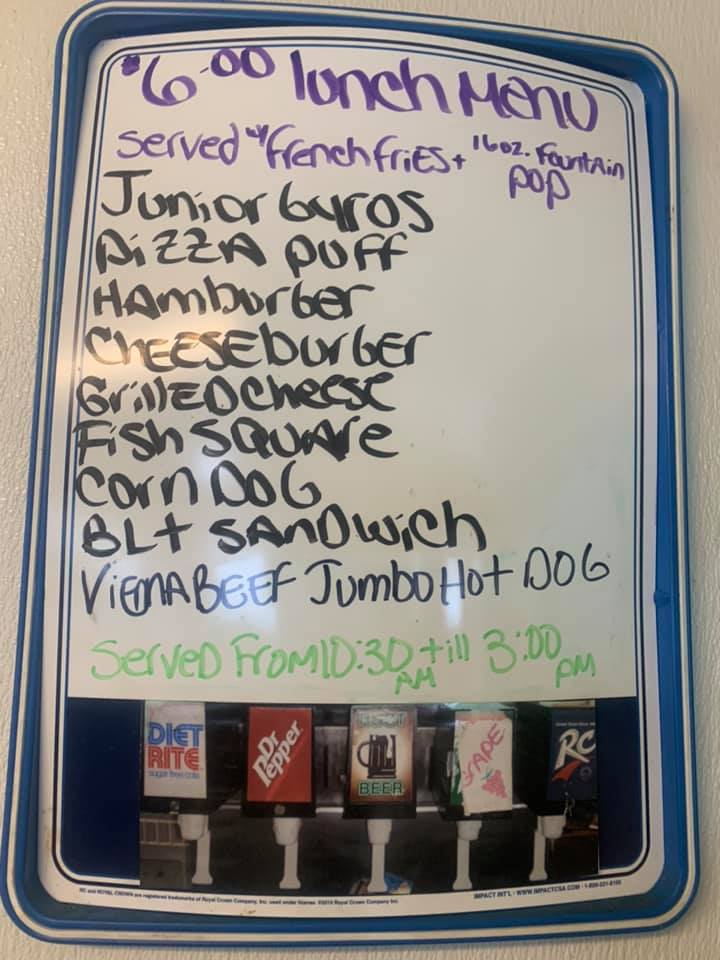 $6.00 lunch Menu
Served w/ French Fries + 16oz. Fountain
pop
Junior Gyros
Pizza Puff
Hamburger
Cheeseburger
Grilled Cheese
Fish Square
Corn Dog
BLT Sandwich
Vienna Beef Jumbo Hot Dog
Served From 10:30 AM till 3:00 PM
DIET RITE
sugar free cola
Dr Pepper
BEER
GRAPE
RC
RC and ROYAL CROWN are registered trademarks of Royal Crown Company, Inc. used under license. ©2010 Royal Crown Company Inc.
IMPACT INT'L - WWW.IMPACTCSA.COM - 1-800-221-8105